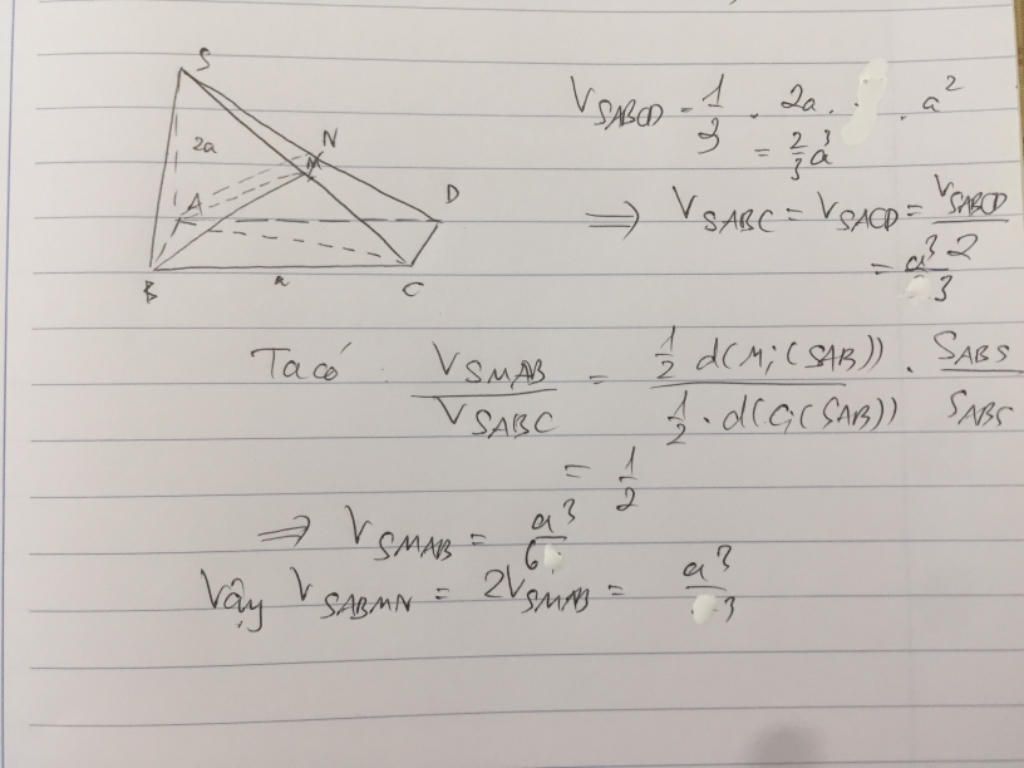 S
N
2a
M
A
D
B
a
C
V_SABCD = 1/3 . 2a . . a²
= 2/3 a³
⟹ V_SABC = V_SACD = V_SABCD/2
= a³/3
Ta có V_SMAB/V_SABC = (1/2 d(M;(SAB)))/(1/2 . d(C;(SAB))) . S_ABS/S_ABS
= 1/2
⟹ V_SMAB = a³/6
Vậy V_SABMN = 2V_SMAB = a³/3